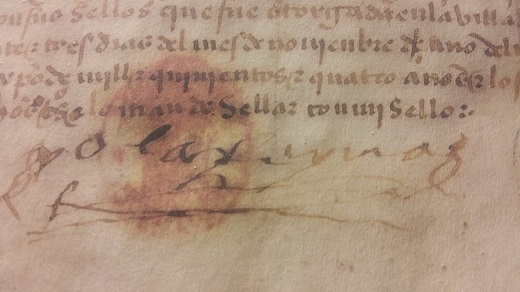 sellos que fue otorgada en la villa
tres dias del mes de noviembre del año del
mill & quinientos & quatro años &
lo mande sellar con mi sello:
yo la reyna